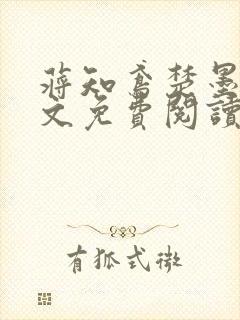 蒋知鸢楚墨
文免費閱讀
有狐式微